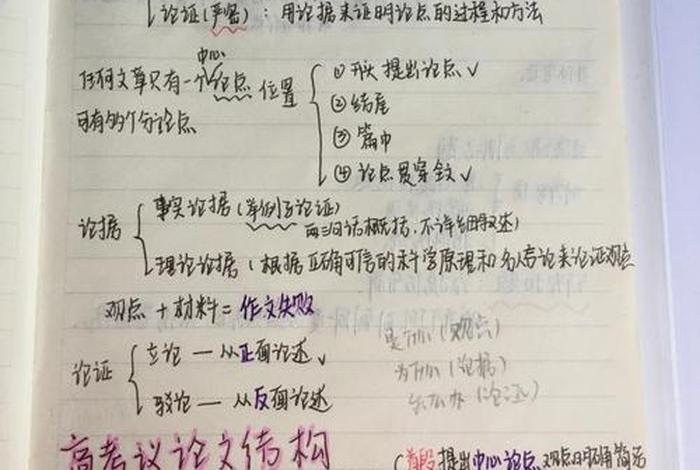 论证(严密)：用论据来证明论点的过程和方法
中心
任何文章只有一个论点 位置
可有多个分论点
①开头提出论点√
②结尾
③篇中
④论点贯穿全文√
论据
事实论据(举例子论证)
两三句话概括,不详细叙述)
理论论据(根据正确可信的科学原理和名人言论来论证观点
观点+材料=作文失败
论证
立论—从正面论述√
驳论—从反面论述
是什么(观点)
为什么(论据)
怎么办(论证)
高考议论文结构
(首段提出中心论点,观点明确简洁